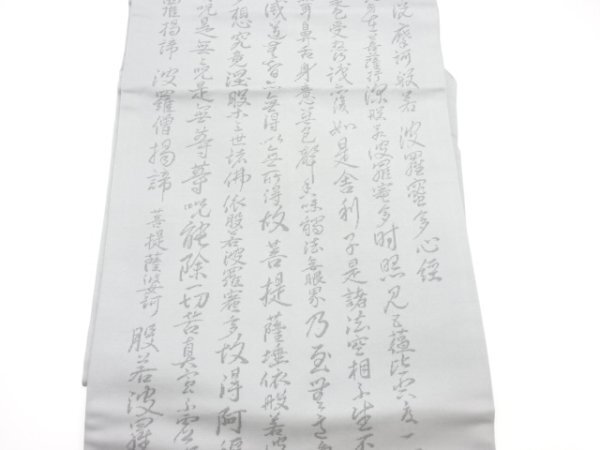 説摩訶般若波羅蜜多心経
在菩薩行深般若波羅蜜多時照見五蘊皆空度一
色受想行識亦復如是舍利子是諸法空相不生不
耳鼻舌身意無色聲香味觸法無眼界乃至無意
滅道無智亦無得以無所得故菩提薩埵依般若波
想究竟涅槃三世諸佛依般若波羅蜜多故得阿耨
呪是無上呪是無等等呪能除一切苦真實不虚
羅揭諦 波羅僧揭諦 菩提薩婆訶 般若波羅